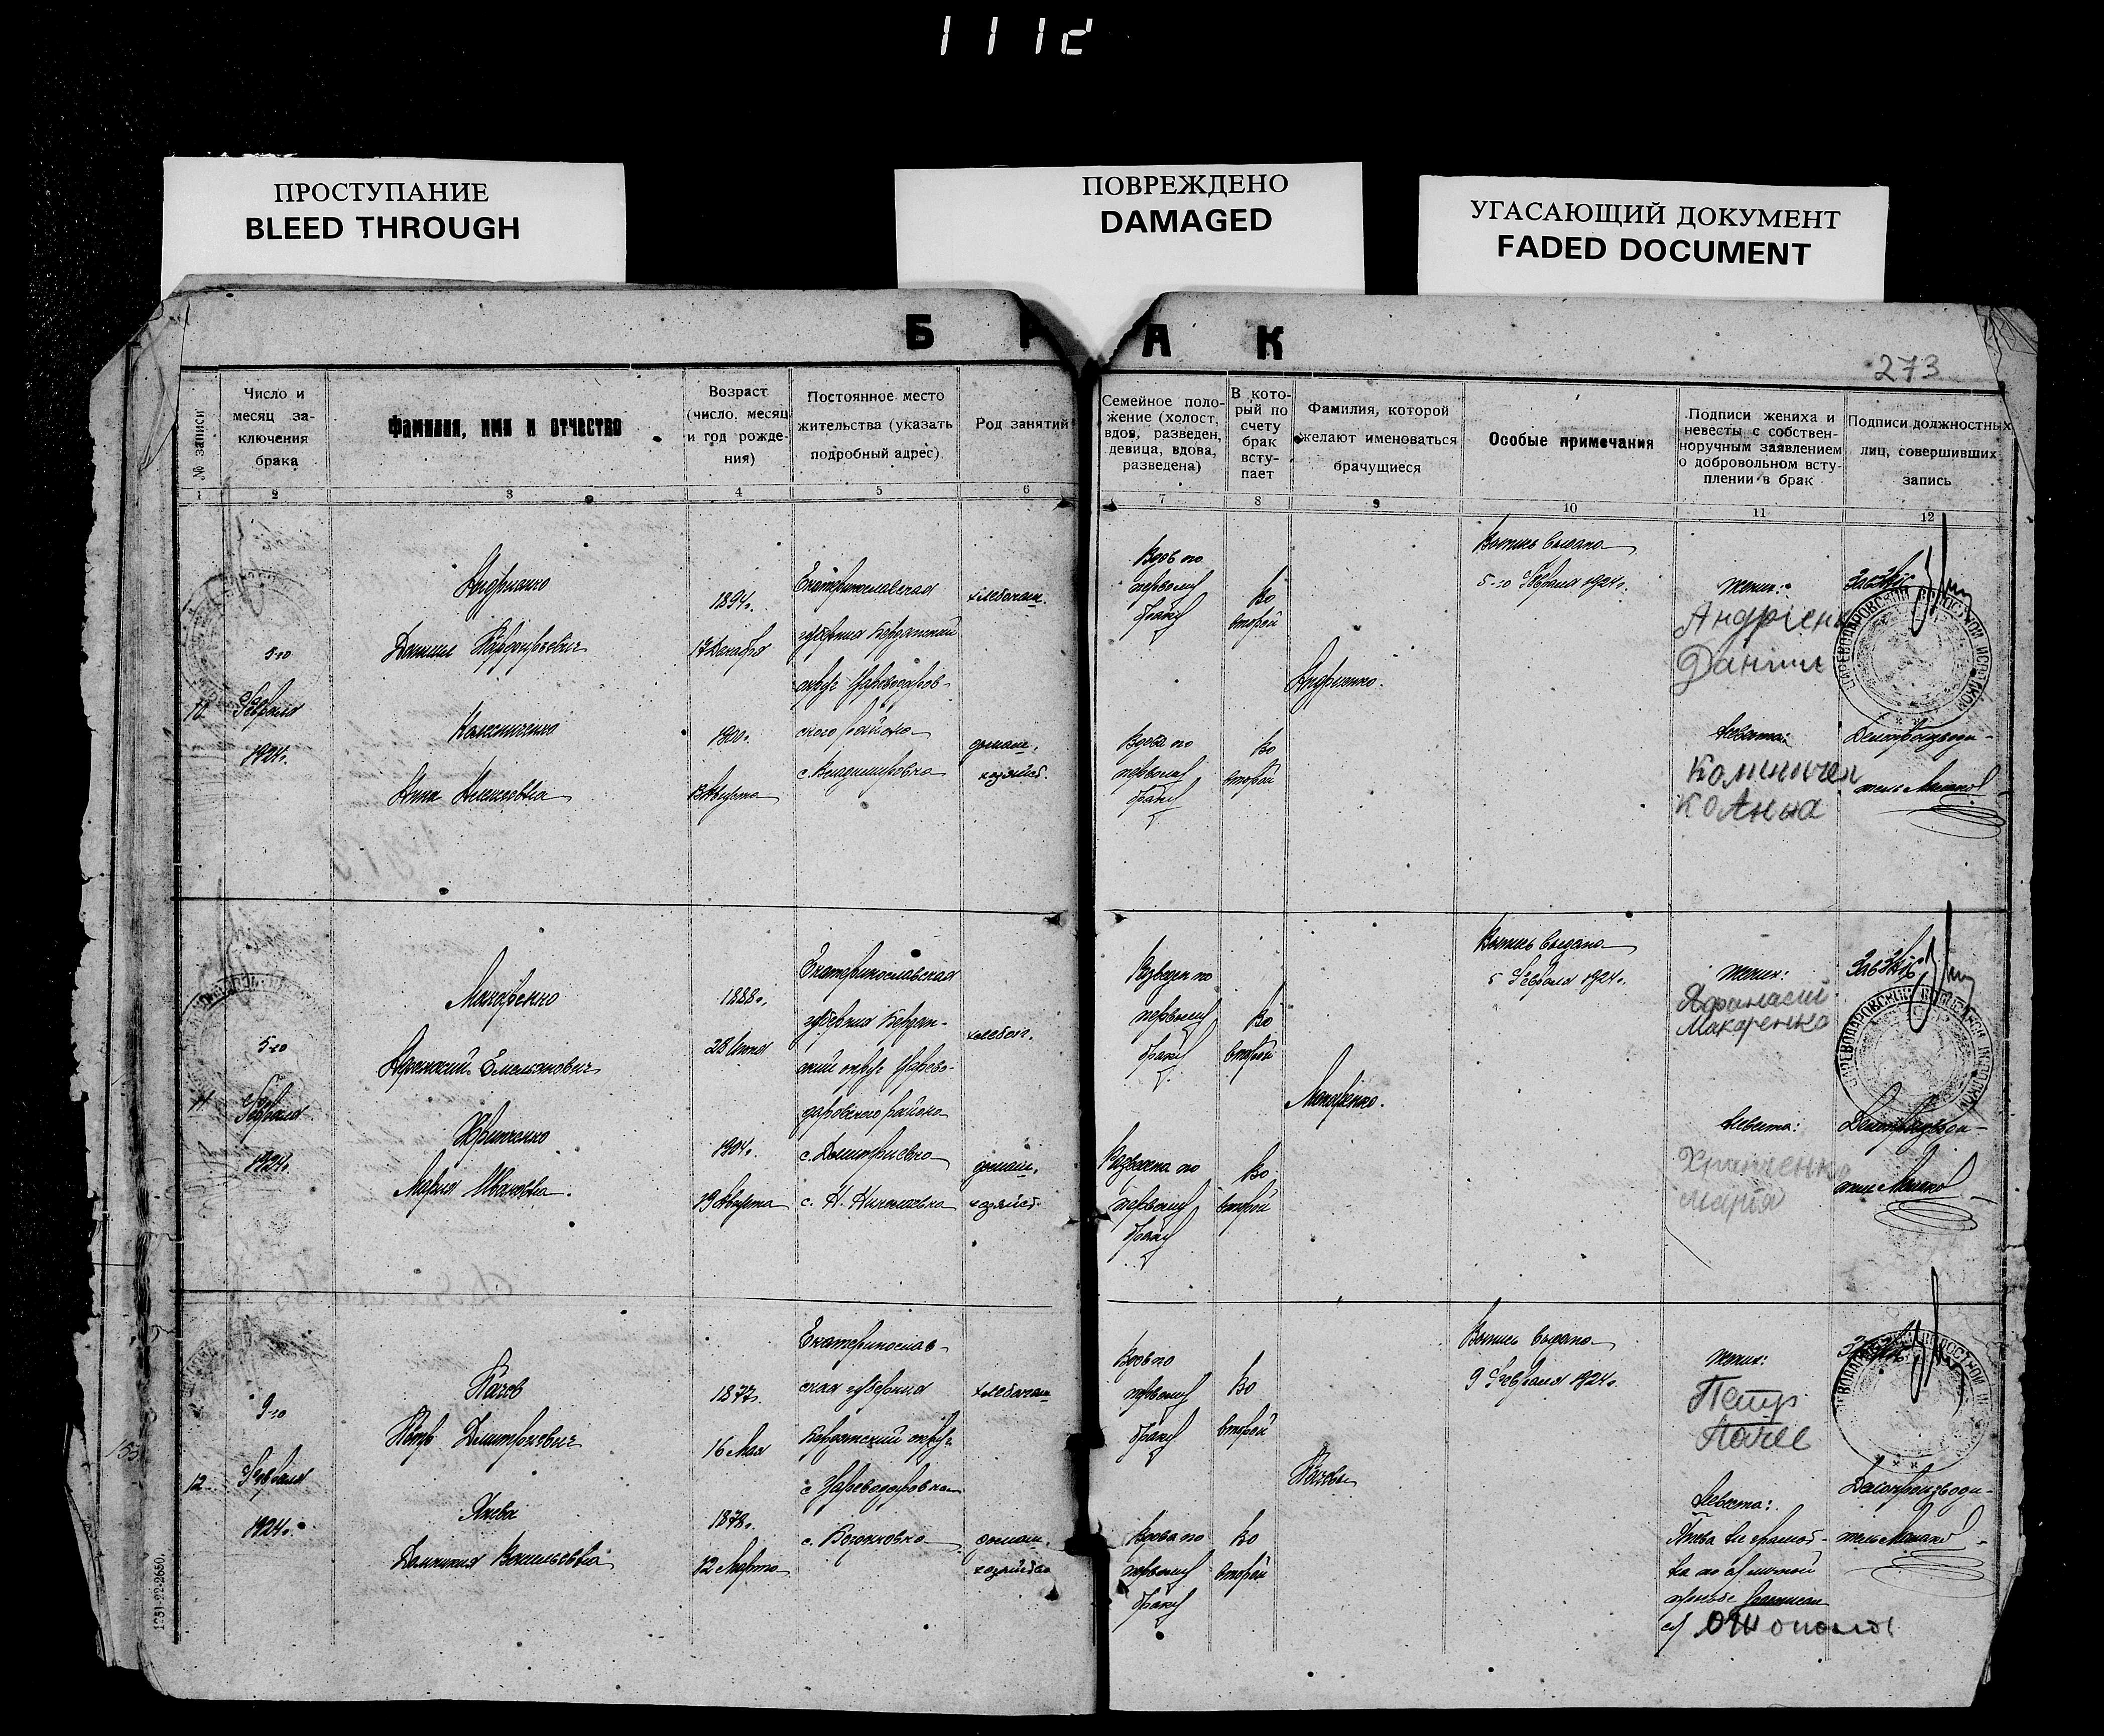 111
ПРОСТУПАНИЕ
BLEED THROUGH
ПОВРЕЖДЕНО
DAMAGED
УГАСАЮЩИЙ ДОКУМЕНТ
FADED DOCUMENT
Б Р А К
273
№ записи
Число и
месяц за-
ключения
брака
Фамилия, имя и отчество
Возраст
(число, месяц
и год рожде-
ния)
Постоянное место
жительства (указать
подробный адрес)
Род занятий
Семейное поло-
жение (холост,
вдов, разведен,
девица, вдова,
разведена)
В кото-
рый по
счету
брак
всту-
пает
Фамилия, которой
желают именоваться
брачущиеся
Особые примечания
Подписи жениха и
невесты с собствен-
норучным заявлением
о добровольном всту-
плении в брак
Подписи должностных
лиц, совершивших
запись
1 2 3 4 5 6 7 8 9 10 11 12
10
5-го
Февраля
1924г.
Андриенко
Даниил
Анна Алексеевна
1894г.
17 Декабря
1900г.
13 Августа
Екатеринославская
губерния Бердянский
округ Цареводаров-
ского района
с. Владимировка
хлебопаш.
домаш.
хозяйст.
Вдов по
первому
браку
Вдова по
первому
браку
Во
второй
Во
второй
Андриенко.
Выпись выдана
5-го Февраля 1924г.
Жених:
Андріенк
Данил
Невеста:
Коліничен
ко Анна
ЗавЗагс
ЦАРЕВОДАРОВСКОЙ ВОЛОСТНОЙ ИСПОЛКОМ
Делопроизводи-
тель
11
5-го
Февраля
1924г.
Макаренко
Афанасий Емельянович
Храпченко
Мария Ивановна.
1888г.
1904г.
19 Августа
Екатеринославская
губерния Бердян-
ский округ Царево-
даровского района
с. Дмитриевка
с. Н. Николаевка
хлебоп.
домаш.
хозяйст.
Разведен по
первому
браку
Разведена по
первому
браку
Во
второй
Во
второй
Макаренко.
Выпись выдана
5 Февраля 1924г.
Жених:
Афанасий
Макаренко
Невеста:
Храпченко
Марія
ЗавЗагс
ЦАРЕВОДАРОВСКОЙ ВОЛОСТНОЙ ИСПОЛКОМ
Делопроизводи-
тель
12
9-го
Февраля
1924г.
Пачев
Петр Дмитриевич
Васильевна
1877г.
16 Мая
1878г.
12 Марта
Екатеринослав-
ская губерния
Бердянский округ
с. Цареводаровка
хлебопаш
домаш.
хозяйство
Вдов по
первому
браку
Вдова по
первому
браку
Во
второй
Во
второй
Пачевы
Выпись выдана
9 Февраля 1924г.
Жених:
Петр
Пачев
Невеста:
не грамот-
на по личной
просьбе расписал
ся
Делопроизводи-
тель
1251-22-2650.